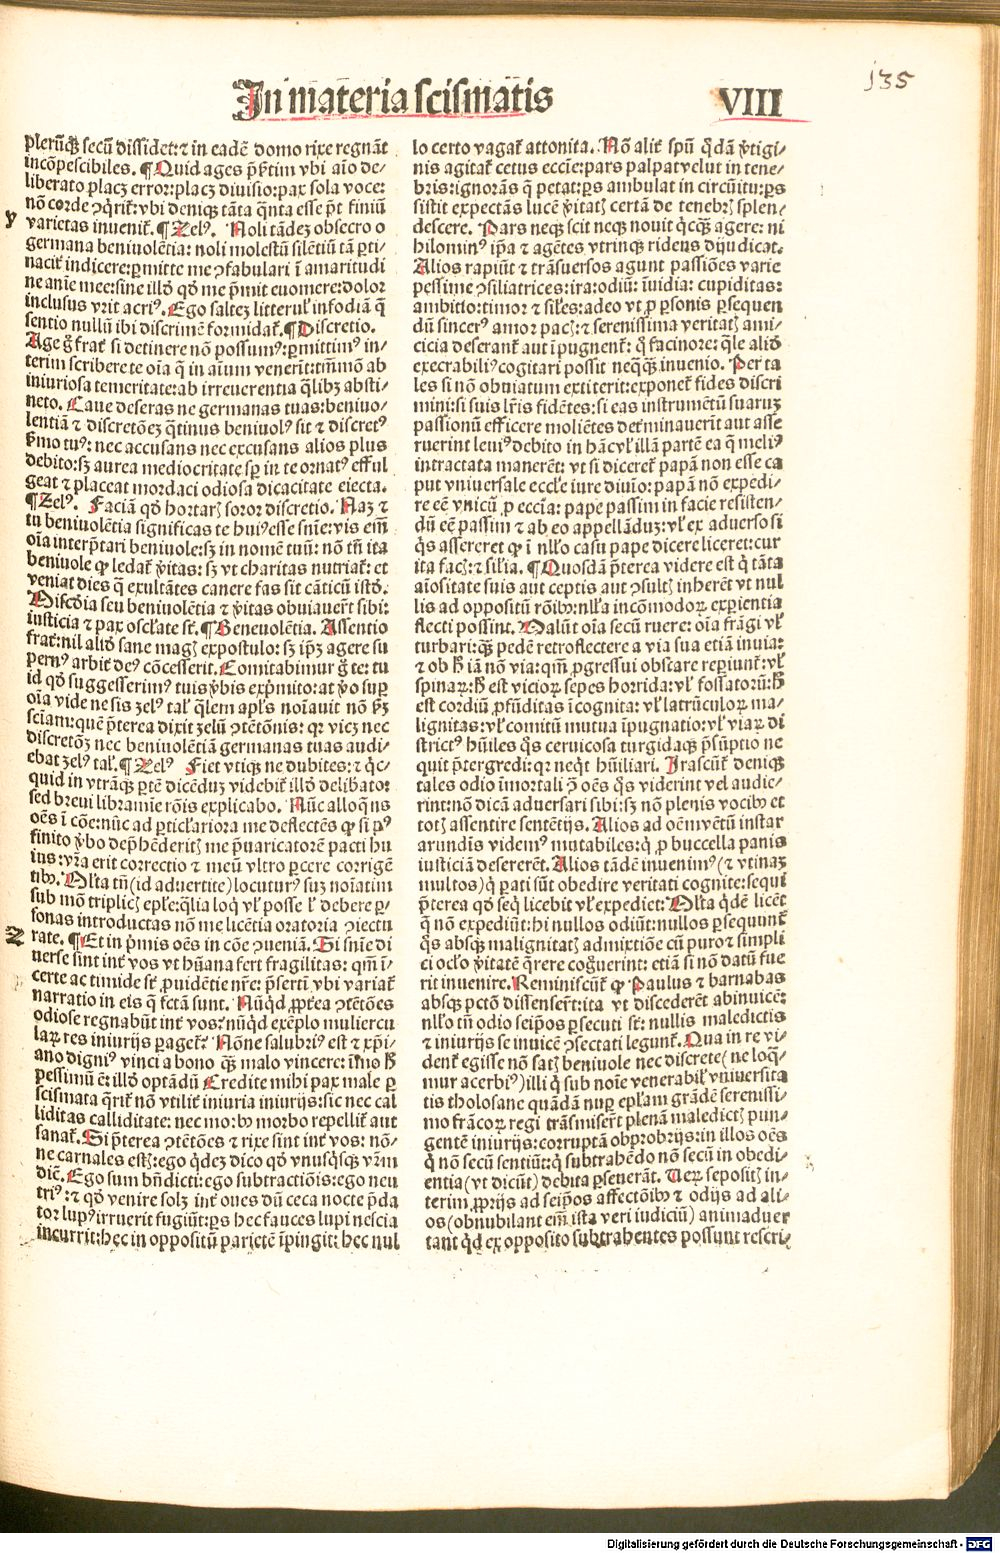 135
In materia scismatis VIII
plerūqꝫ secū dissidet: ⁊ in eadē domo rixe regnāt
incōpescibiles. ¶ Quid ages p̄sertim vbi aīo de-
liberato placꝫ error: placꝫ diuisio: pax sola voce:
nō corde ꝯq̄rit̄: vbi deniqꝫ tāta q̄nta esse pōt finiū
y varietas inuenit̄. ¶ Zelꝰ. Noli tādeꝫ obsecro o
germana beniuolētia: noli molestū silētiū tā perti-
nacit̄ indicere: ꝑmitte me ꝯfabulari ī amaritudi
ne anīe mee: sine illō qđ me p̄mit euomere: dolor
inclusus vrit acriꝰ. Ego salteꝫ litterul̄ infodiā q̄
sentio nullū ibi discrimē formidat̄. ¶ Discretio.
Age ḡ frat̄ si detinere nō possumꝰ: ꝑmittimꝰ in-
terim scribere te oīa q̄ in aīum venerīt: tm̄mō ab
iniuriosa temeritate: ab irreuerentia q̄libꝫ absti-
neto. Caue deseras ne germanas tuas: beniuo-
lentiā ⁊ discretōeꝫ q̄tinus beniuolꝰ sit ⁊ discretꝰ
s̄mo tuꝰ: nec accusans nec excusans alios plus
debito: sꝫ aurea mediocritate sp̄ in te ornatꝰ efful
geat ⁊ placeat mordaci odiosa dicacitate eiecta.
¶ Zelꝰ. Faciā qđ hortaris soror discretio. Naꝫ ⁊
tu beniuolētia significas te huiꝰesse sn̄ie: vis em̄
oīa interp̄tari beniuole: sꝫ in nomē tuū: nō tn̄ ita
beniuole ꝙ ledat̄ v̄itas: sꝫ vt charitas nutriat̄: et
veniat dies q̄ exultātes canere fas sit cāticū istō.
Mīscđia seu beniuolētia ⁊ v̄itas obuiauer̄t sibi:
iusticia ⁊ pax oscl̄ate st̄. ¶ Beneuolētia. Assentio
frat̄: nil aliđ sane magꝭ expostulo: sꝫ ip̄ꝫ agere su
pernꝰ arbit̄ deꝰ cōcesserit. Comitabimur ḡ te: tu
id qđ suggesserimꝰ tuis v̄bis exp̄mito: at v̄o suꝑ
oīa vide ne sis zelꝰ tal̄ q̄lem apl̄s noīauit nō sꝫ
sciam: quē p̄terea dixit zelū ꝯtētōnis: qꝛ vicꝫ nec
discretōꝫ nec beniuolētiā germanas tuas audi-
ebat zelꝰ tal̄. ¶ Zelꝰ Fiet vtiqꝫ ne dubites: ⁊ q̄c-
quid in vtrāqꝫ ꝑtē dicēduꝫ videbit̄ illđ delibator:
sed breui libramīe rōis explicabo. Nūc alloqꝛ nꝰ
oēs ī cōe: nūc ad ꝑticl̄ariora me deflectēs ꝙ si pꝰ
finito v̄bo dep̄hēderitꝭ me p̄uaricatorē pacti hu
ius: vr̄a erit correctio ⁊ meū vltro ꝑcere corrigē
tibꝰ. Mlta tn̄ (id aduertite) locuturꝰ suꝫ noīatim
sub mō triplicꝭ epl̄e: q̄lia loq̄ vl̄ posse l̄ debere ꝑ-
sonas introductas nō me licētia oratoria ꝯiectu
Z rate. ¶ Et in p̄mis oēs in cōe ꝯueniā. Si sn̄ie di
uerse sint int̄ vos vt hūana fert fragilitas: qm̄ ī-
certe ac timide st̄ ꝓuidētie nr̄e: p̄serti vbi variat̄
narratio in eis q̄ fctā sunt. Nūqđ ꝓpt̄ea ꝯtētōes
odiose regnabūt int̄ vos? nūqđ exēplo muliercu
laꝝ res iniurijs ꝑaget̄? Nōne salubriꝰ est ⁊ xp̄i-
ano digniꝰ vinci a bono qꝫ malo vincere: īmo ꝉ
pessimū ē: illđ optādū Credite mihi pax male ꝑ
scismata q̄rit̄ nō vtilit̄ iniuria iniurijs: sic nec cal
liditas calliditate: nec morbꝰ morbo repellit̄ aut
sanat̄. Si p̄terea ꝯtētōes ⁊ rixe sint int̄ vos: nō-
ne carnales estꝭ: ego q̄deꝫ dico qđ vnusq̄sqꝫ vr̄m
dic̄. Ego sum bn̄dicti: ego subtractiōis: ego neu
triꝰ: ⁊ qđ venire solꝫ int̄ oues dū ceca nocte p̄da
tor lupꝰirruerit fugiūt: ꝑs hec fauces lupi nescia
incurrit: hec in oppositū parietē īpingit: hec nul
lo certo vagat̄ attonita. Nō alit̄ spū q̄dā v̄tigi-
nis agitat̄ cetus eccīe: pars palpat velut in tene-
bris: ignorās q̄ petat: ꝑs ambulat in circūitu: ꝑs
sistit expectās lucē v̄itatꝭ certā de tenebrꝭ splen-
descere. Pars neqꝫ scit neqꝫ nouit q̄cqꝫ agere: ni
hilominꝰ ip̄a ⁊ agētes vtrinqꝫ ridens dijudicat.
Alios rapiūt ⁊ trāsuersos agunt passiōes varie
pessime ꝯsiliatrices: ira: odiū: īuidia: cupiditas:
ambitio: timor ⁊ sil̄es: adeo vt ꝓ ꝑsonis ꝑsequen
dū sincerꝰ amor pacꝭ: ⁊ serenissima veritatꝭ ami-
cicia deserant̄ aut īpugnent̄: q̄ facinore: q̄le aliđ
execrabiliꝰcogitari possit neqꝫqꝫ inuenio. Per ta
les si nō obuiatum extiterit: exponet̄ fides discri
mini: si suis lr̄is fidētes: si eas instrumētū suaruꝫ
passionū efficere moliētes det̄minauerīt aut asse
ruerint leuiꝰ debito in hāc vl̄ illā partē ea q̄ meliꝰ
intractata manerēt: vt si diceret̄ papā non esse ca
put vniuersale eccl̄e iure diuīo: papā nō expedi-
re eē vnicū ꝓ eccīa: pape passim in facie resisten-
dū eē passim ⁊ ab eo appellādum: vl̄ ex aduerso si
q̄s assereret ꝙ ī nll̄o casu pape dicere liceret: cur
ita facꝭ: ⁊ sil̄ia. ¶ Quosdā p̄terea videre est q̄ tāta
aīositate suis aut ceptis aut ꝯsultꝭ inherēt vt nul
lis ad oppositū rōibꝰ: nll̄a incōmodoꝝ exꝑientia
flecti possint. Malūt oīa secū ruere: oīa frāgi vl̄
turbari: qꝫ pedē retroflectere a via sua etiā inuia:
⁊ ob ꝉ iā nō via: qm̄ ꝓgressui obstare reꝑiunt̄: vl̄
spinaꝝ: ꝉ est vicioꝝ sepes horrida: vl̄ fossatorū: ꝉ
est cordiū ꝓfūditas īcognita: vl̄ latrūculoꝝ ma-
lignitas: vl̄ comitū mutua īpugnatio: vl̄ viaꝝ di
strictꝰ hūiles q̄s ceruicosa turgidaqꝫ p̄sūptio ne
quit p̄tergredi: qꝛ neq̄t hūiliari. Irascūt̄ deniqꝫ
tales odio īmortali ꝯ oēs q̄s viderint vel audie-
rint: nō dicā aduersari sibi: sꝫ nō plenis vocibꝰ et
totꝭ assentire sentētijs. Alios ad oēm vētū instar
arundis videmꝰ mutabiles: q̄ ꝓ buccella panis
iusticiā desererēt. Alios tādē inuenimꝰ (⁊ vtinaꝫ
multos) q̄ ꝑati sūt obedire veritati cognite: sequi
p̄terea qđ seq̄ licebit vl̄ expediet: Mlta q̄dē licēt
q̄ nō expediūt: hi nullos odiūt: nullos ꝑsequunt̄
q̄s absqꝫ malignitatꝭ admixtiōe cū puroꝛ simpli
ci ocl̄o v̄itatē q̄rere cog̊uerint: etiā si nō datū fue
rit inuenire. Reminiscūt̄ ꝙ Paulus ⁊ barnabas
absqꝫ pctō dissenser̄t: ita vt discederēt abinuicē:
nll̄o tn̄ odio seip̄os ꝑsecuti st̄: nullis maledictis
⁊ iniurijs se inuicē ꝯsectati legunt̄. Qua in re vi-
dent̄ egisse nō satꝭ beniuole nec discrete (ne loq̄-
mur acerbiꝰ) illi q̄ sub noīe venerabil̄ vniuersita
tis tholosane quādā nuꝑ epl̄am grādē serenissi-
mo frācoꝝ regi trāsmiser̄t plenā maledictꝭ pun-
gentē iniurijs: corruptā obprobrijs: in illos oēs
q̄ nō secū sentiūt: q̄ subtrahēdo nō secū in obedi-
entia (vt dicūt) debita ꝑseuerāt. Ueꝝ sepositꝭ in-
terim ꝓprijs ad seip̄os affectōibꝰ ⁊ odijs ad ali-
os (obnubilant em̄ ista veri iudiciū) animaduer
tant q̄d ex opposito subtrahentes possunt rescri-
Digitalisierung gefördert durch die Deutsche Forschungsgemeinschaft - DFG